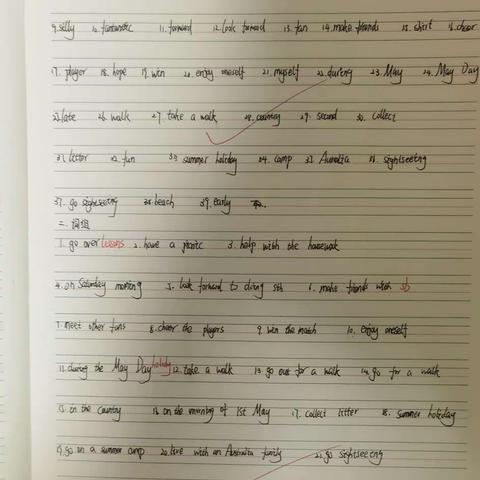 9. silly 10. fantastic 11. forward 12. look forward 13. fan 14. make friends 15. shirt 16. cheer
17. player 18. hope 19. win 20. enjoy oneself 21. myself 22. during 23. May 24. May Day
25. late 26. walk 27. take a walk 28. country 29. second 30. collect
31. litter 32. fun 33. summer holiday 34. camp 35. Australia 36. sightseeing
37. go sightseeing 38. beach 39. early
二、词组
1. go over lessons 2. have a picnic 3. help with the housework
4. on Saturday morning 5. look forward to doing sth 6. make friends with sb
7. meet other fans 8. cheer the players 9. win the match 10. enjoy oneself
11. during the May Day holiday 12. take a walk 13. go out for a walk 14. go for a walk
15. in the country 16. on the morning of 1st May 17. collect litter 18. summer holiday
19. go on a summer camp 20. live with an Australia family 21. go sightseeing